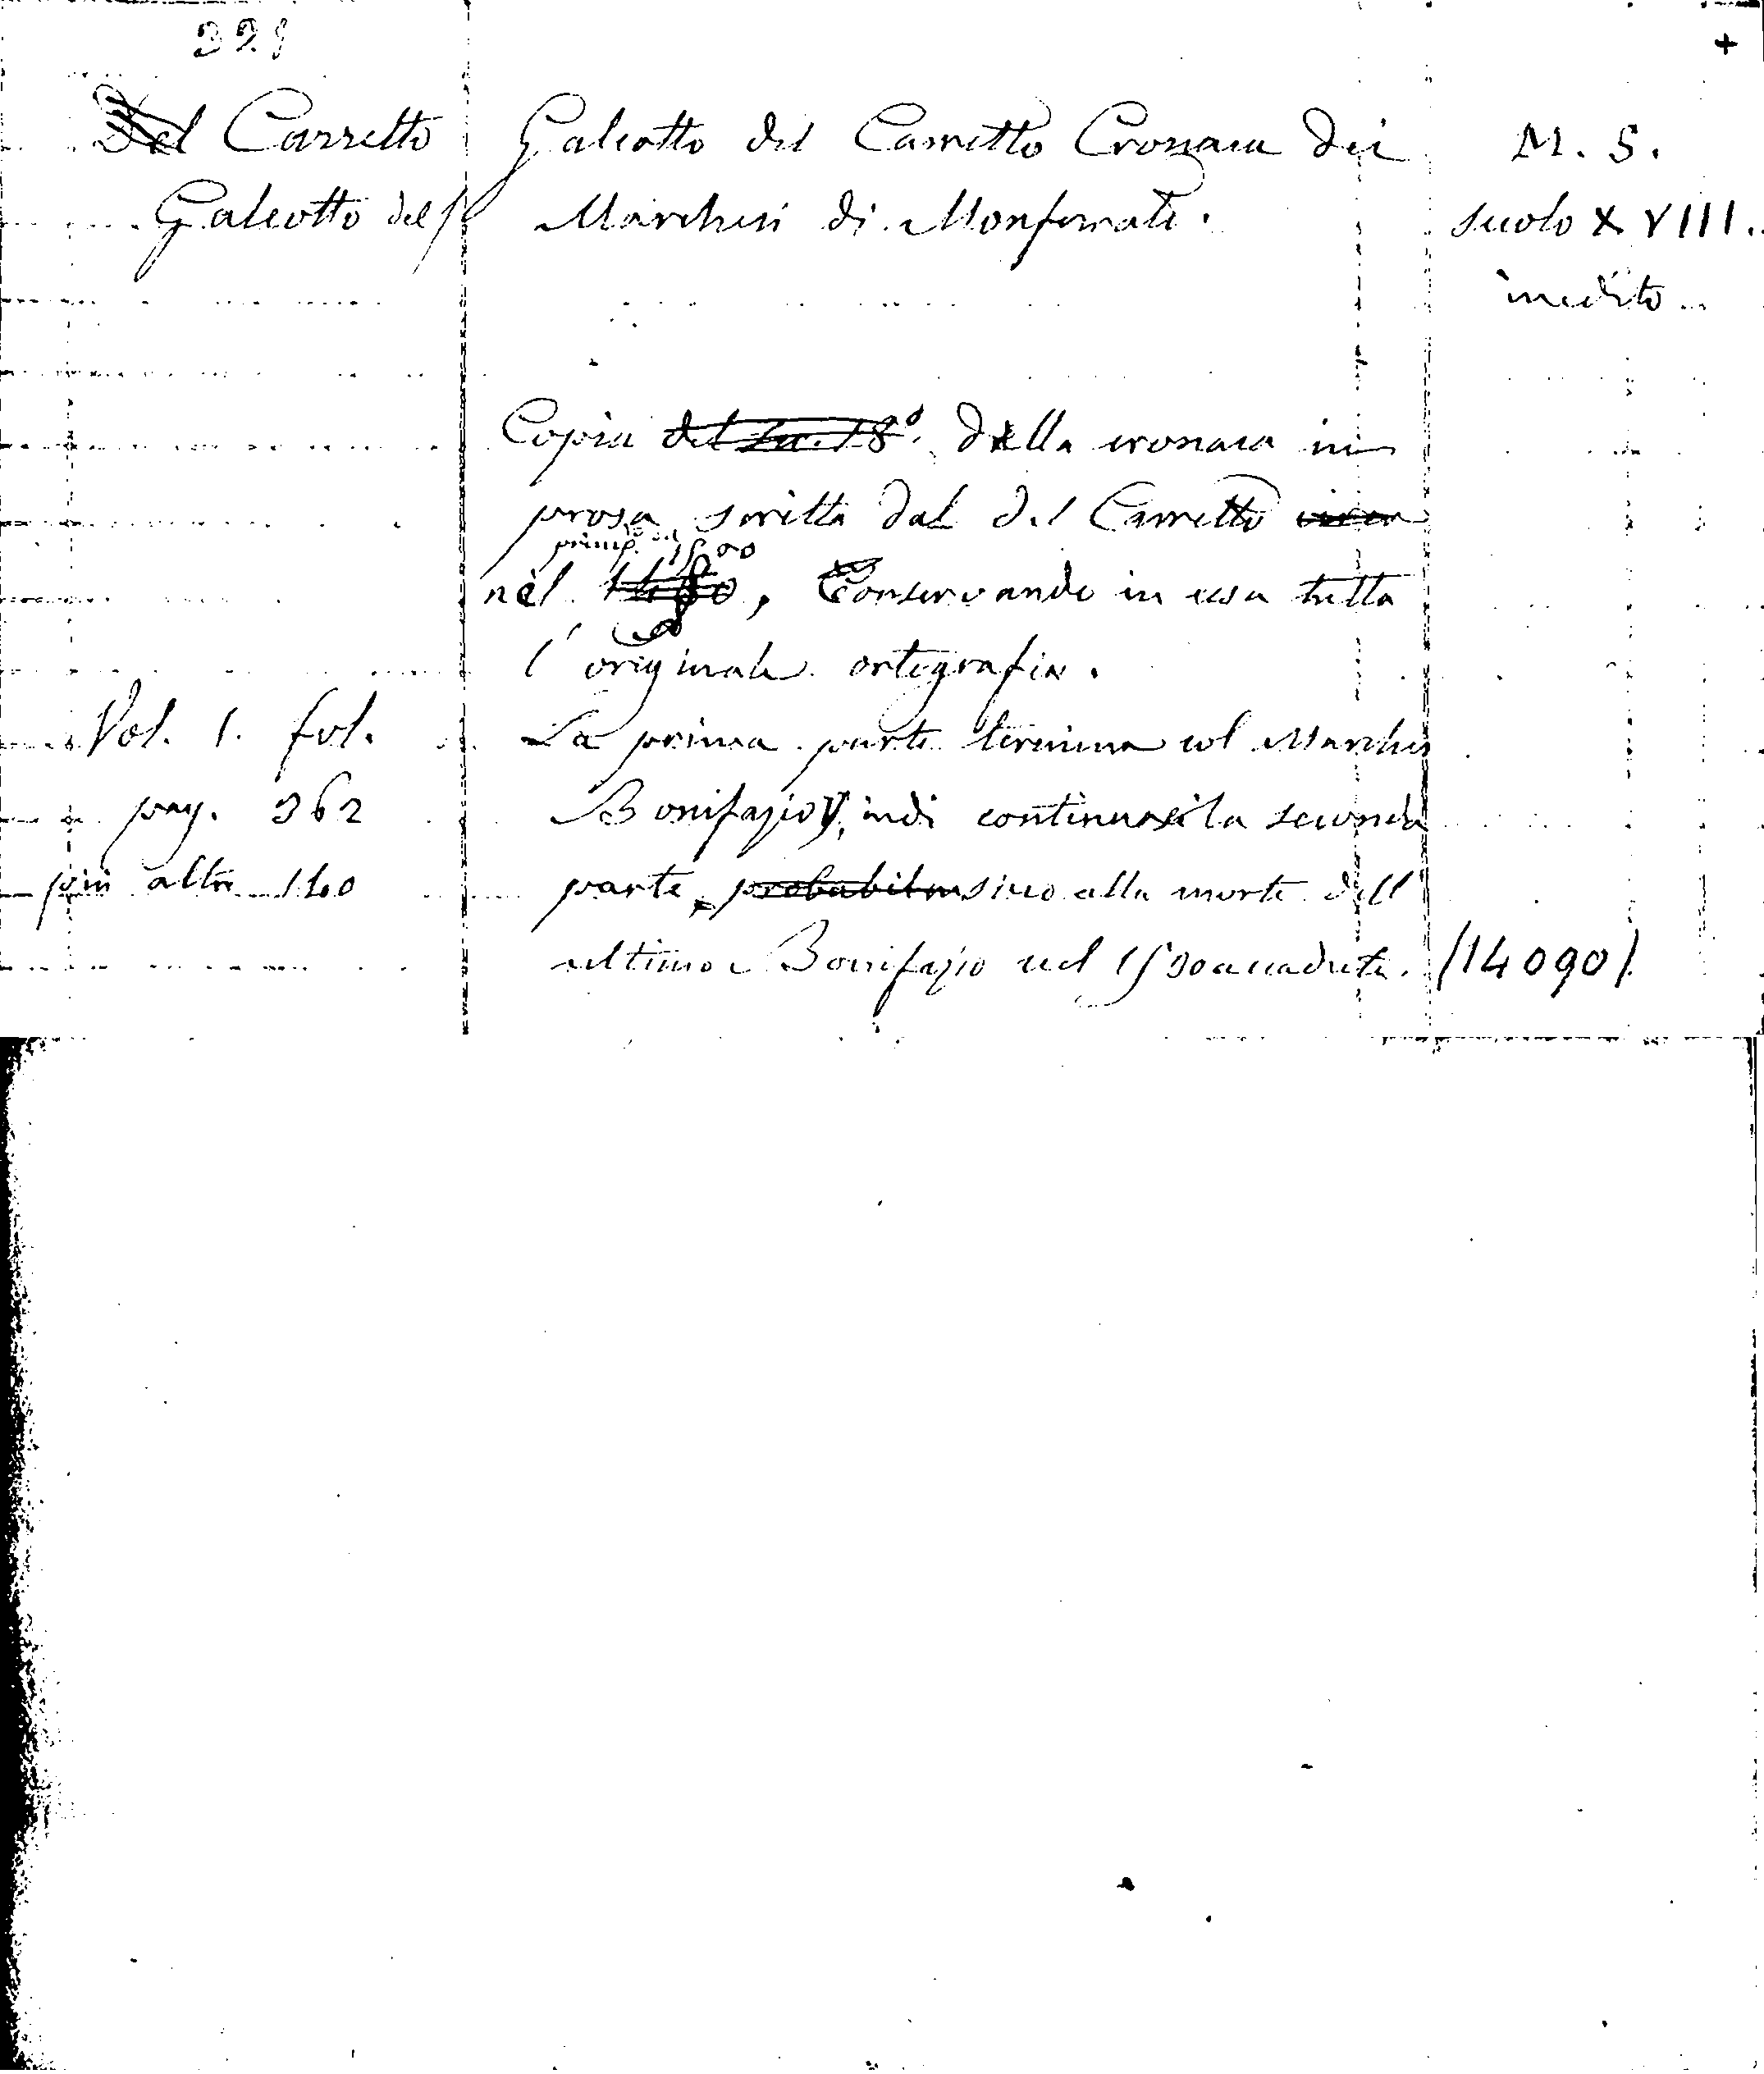 329
+
Del Carretto
Galeotto del
Galeotto del Carretto Cronaca dei
Marchesi di Monferrato.
M. S.
secolo XVIII.
inedito
Copia del sec. 18º. della cronaca in
prosa scritta dal del Carretto circa
princip. del 1500
nel 1480, Conservando in essa tutta
l'originale ortografia.
La prima parte termina col Marchese
Bonifazio V, indi continuasi la seconda
parte probabilm sino alla morte dell'
ultimo Bonifazio nel 1530 accaduta.
Vol. 1. fol.
pag. 362
più altre 140
(14090)